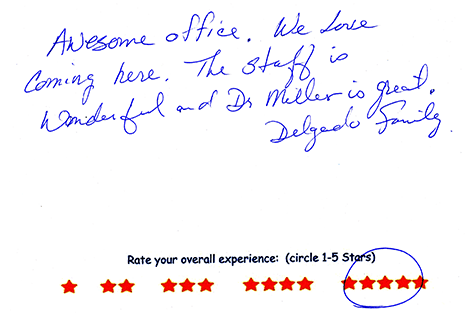 Awesome office. We love
coming here. The staff is
wonderful and Dr Miller is great.
Delgado Family
Rate your overall experience: (circle 1-5 Stars)